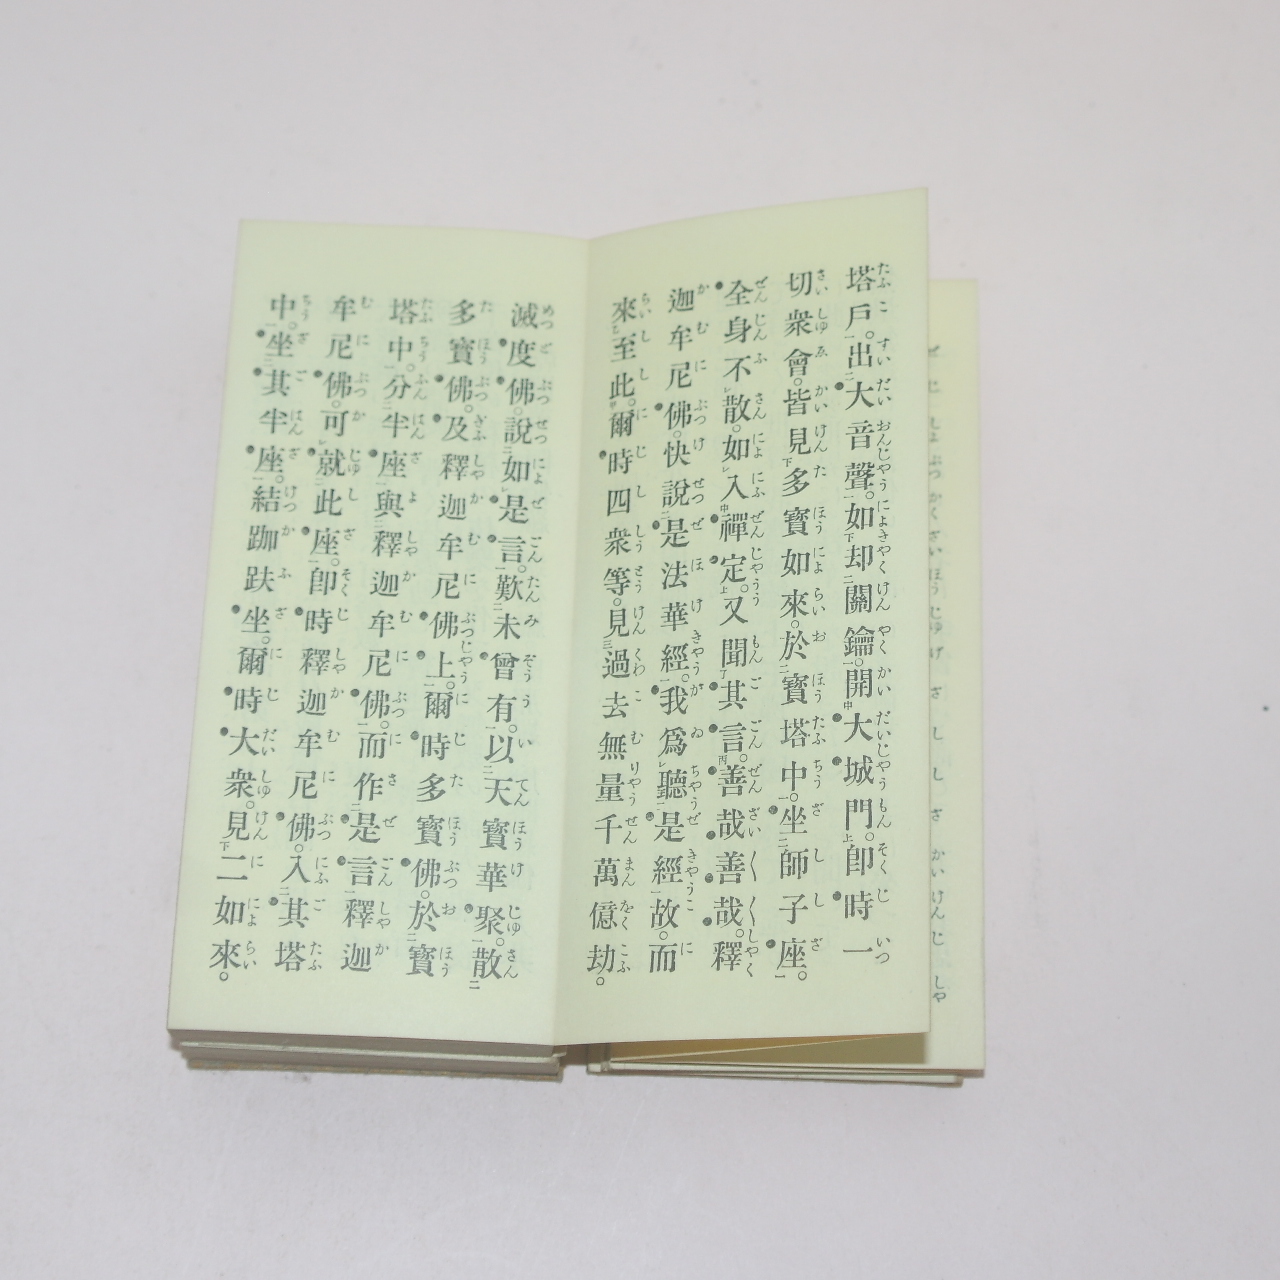 塔戶。出大音聲。如却關鑰。開大城門。卽時一
切衆會。皆見多寶如來。於寶塔中。坐師子座。
全身不散。如入禪定。又聞其言。善哉善哉。釋
迦牟尼佛。快說是法華經。我爲聽是經故。而
來至此。爾時四衆等。見過去無量千萬億劫。
滅度佛。說如是言。歎未曾有。以天寶華聚。散
多寶佛。及釋迦牟尼佛上。爾時多寶佛。於寶
塔中。分半座與釋迦牟尼佛。而作是言釋迦
牟尼佛。可就此座。卽時釋迦牟尼佛。入其塔
中。坐其半座。結跏趺坐。爾時大衆。見二如來。